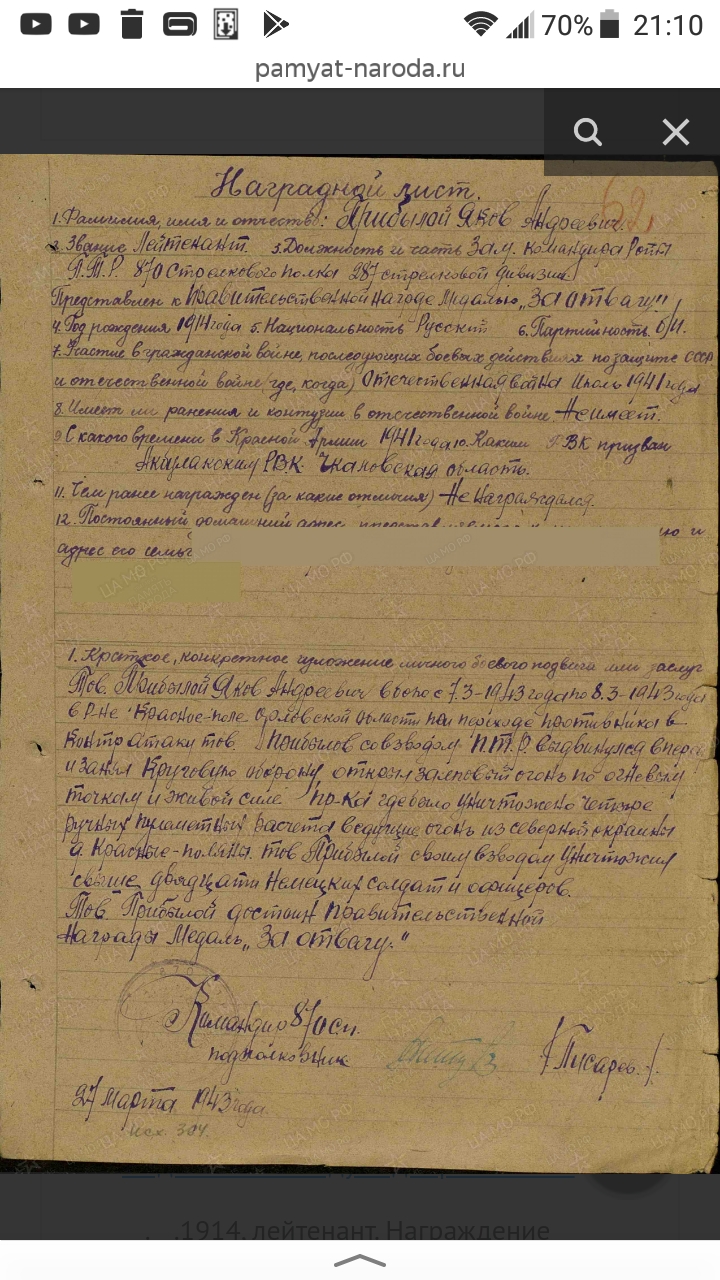 70% 21:10
pamyat-naroda.ru
Наградной лист.
62,
1. Фамилия, имя и отчество: Прибылой Яков Андреевич
2. Звание Лейтенант. 3. Должность и часть Зам. Командира Роты
П.Т.Р. 870 Стрелкового полка 287 стрелковой дивизии.
Представлен к Правительственной награде Медалью „За отвагу"
4. Год рождения 1914 года 5. Национальность Русский 6. Партийность б/п.
7. Участие в гражданской войне, последующих боевых действиях по защите СССР
и отечественной войне (где, когда) Отечественная война Июль 1941 года
8. Имеет ли ранения и контузии в отечественной войне Не имеет.
9 С какого времени в Красной Армии 1941 года 10. Каким РВК призван
Акбулакским РВК. Чкаловская область.
11. Чем ранее награжден (за какие отличия) Не Награждался.
12. Постоянный домашний адрес и
адрес его семьи
1. Краткое, конкретное изложение личного боевого подвига или заслуг
Тов. Прибылой Яков Андреевич в бою с 7.3-1943 года по 8.3-1943 года
в р-не Красное-поле Орловской области при переходе противника в
контратаку тов. Прибылов со взводом П.Т.Р. выдвинулся вперед
и занял круговую оборону открыл залповый огонь по огневым
точкам и живой силе пр-ка где было уничтожено четыре
ручных пулеметных расчета ведущие огонь из северной окраины
д. Красные-поляны. тов Прибылой своим взводом уничтожил
свыше двадцати Немецких солдат и офицеров.
Тов. Прибылой достоин Правительственной
Награды Медаль „За отвагу."
Командир 870 сп.
подполковник /Писарев./
27 Марта 1943 года.
исх. 304
1914, лейтенант. Награждение